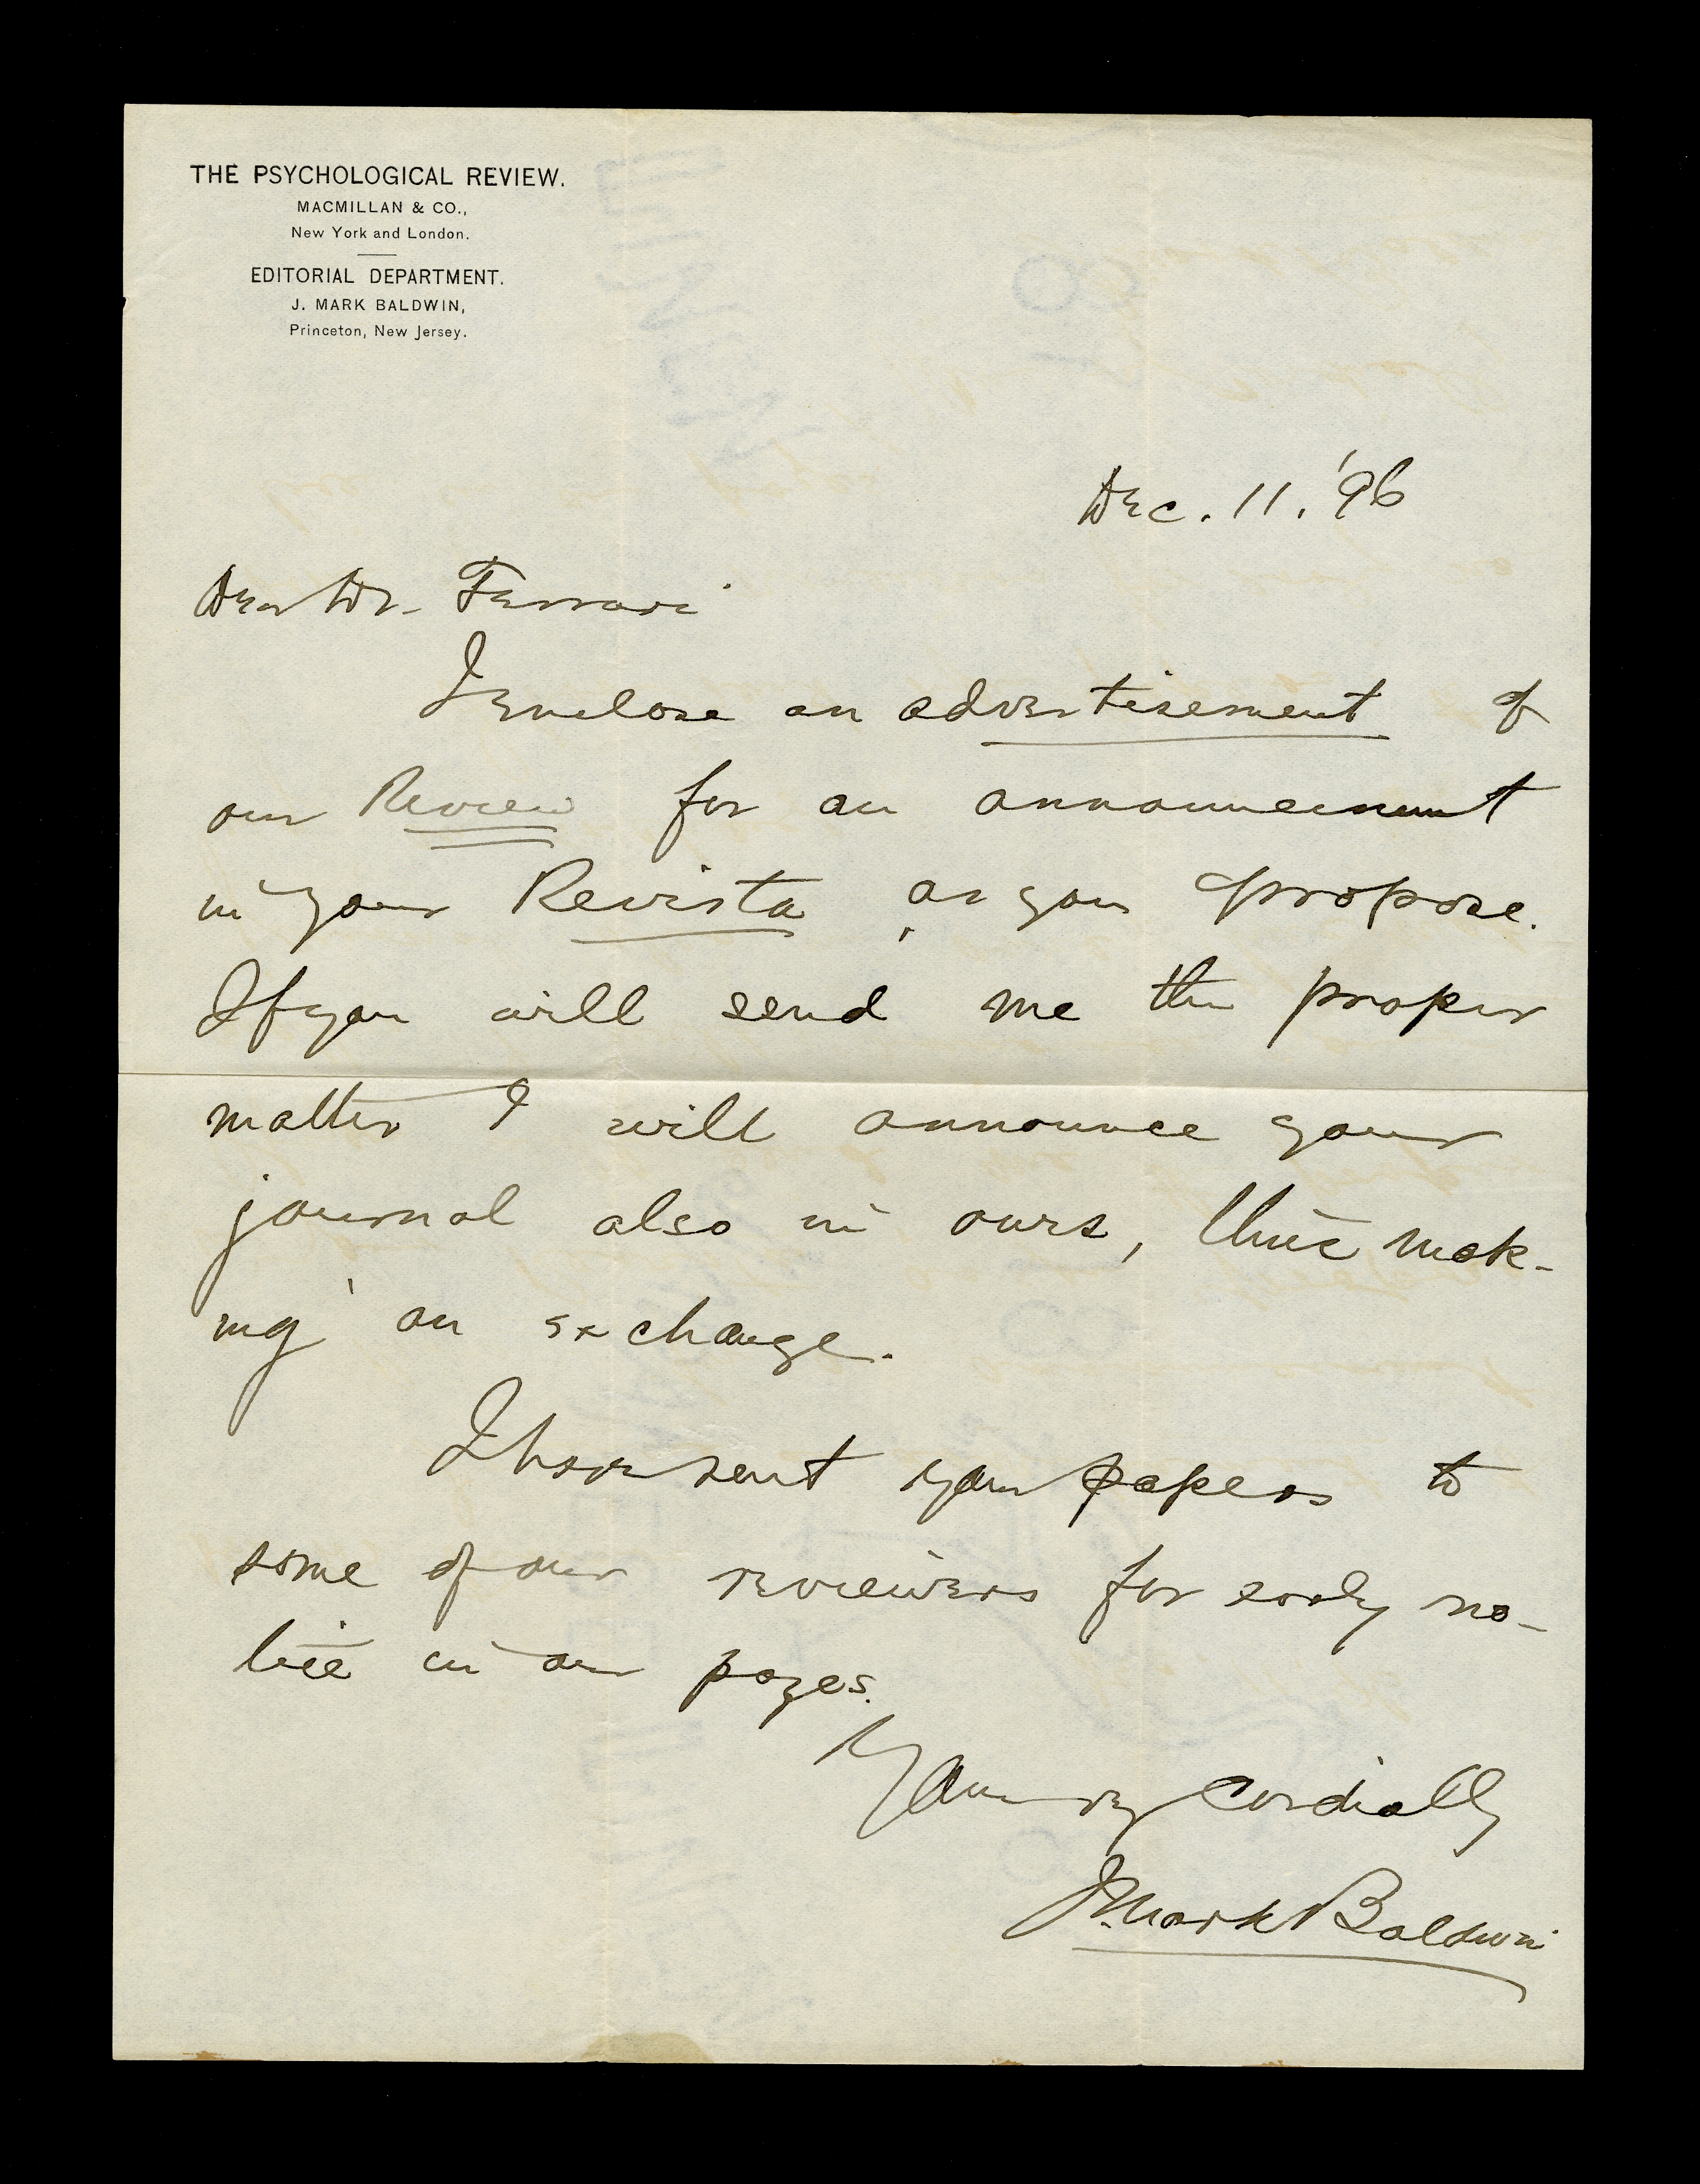 THE PSYCHOLOGICAL REVIEW.
MACMILLAN & CO.,
New York and London.
EDITORIAL DEPARTMENT.
J. MARK BALDWIN,
Princeton, New Jersey.
Dec. 11, '96
Dear Dr. Ferrari
I enclose an advertisement of
our Review for an announcement
in your Revista, as you propose.
If you will send me the proper
matter I will announce your
journal also in ours, thus mak-
ing an exchange.
I have sent your papers to
some of our reviewers for early no-
tice in our pages.
Yours very cordially
J. Mark Baldwin